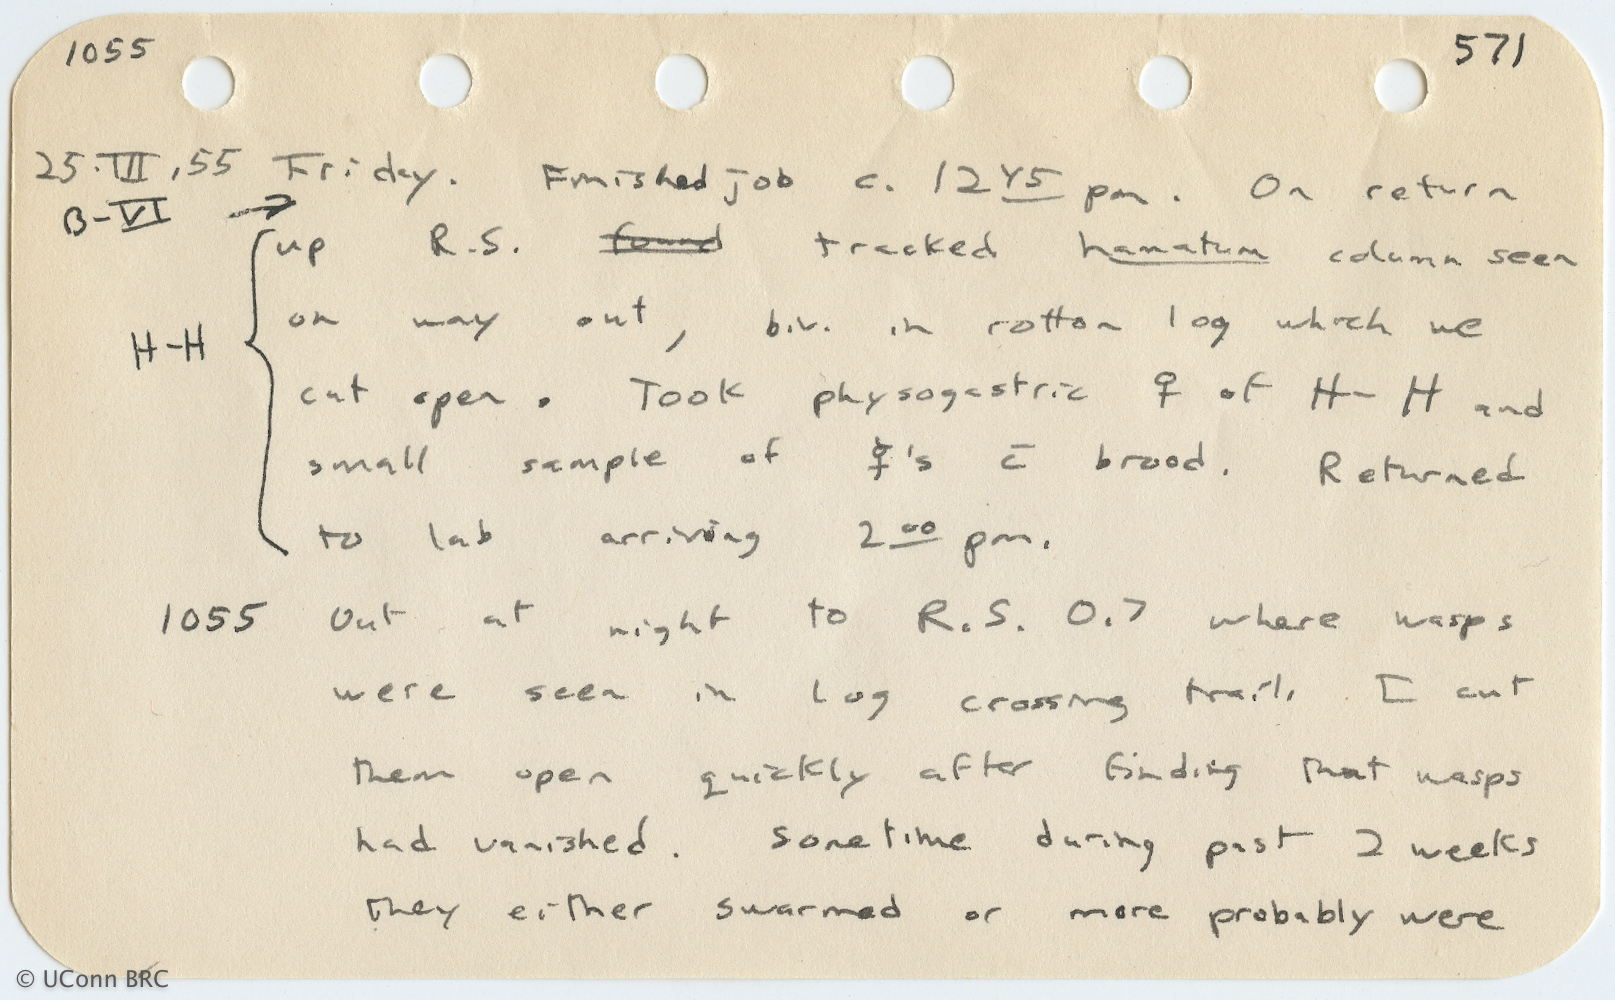 1055
571
25.VII.55 Friday. Finished job c. 12 45 pm. On return
B-VI →
up R.S. found tracked hamatum column seen
on way out, biv. in rotton log which we
H-H
cut open. Took physogastric ♀ of H-H and
small sample of ☿'s c̄ brood. Returned
to lab arriving 2 00 pm.
1055 Out at night to R.S. 0.7 where wasps
were seen in log crossing trail. I cut
them open quickly after finding that wasps
had vanished. Sometime during past 2 weeks
they either swarmed or more probably were
© UConn BRC